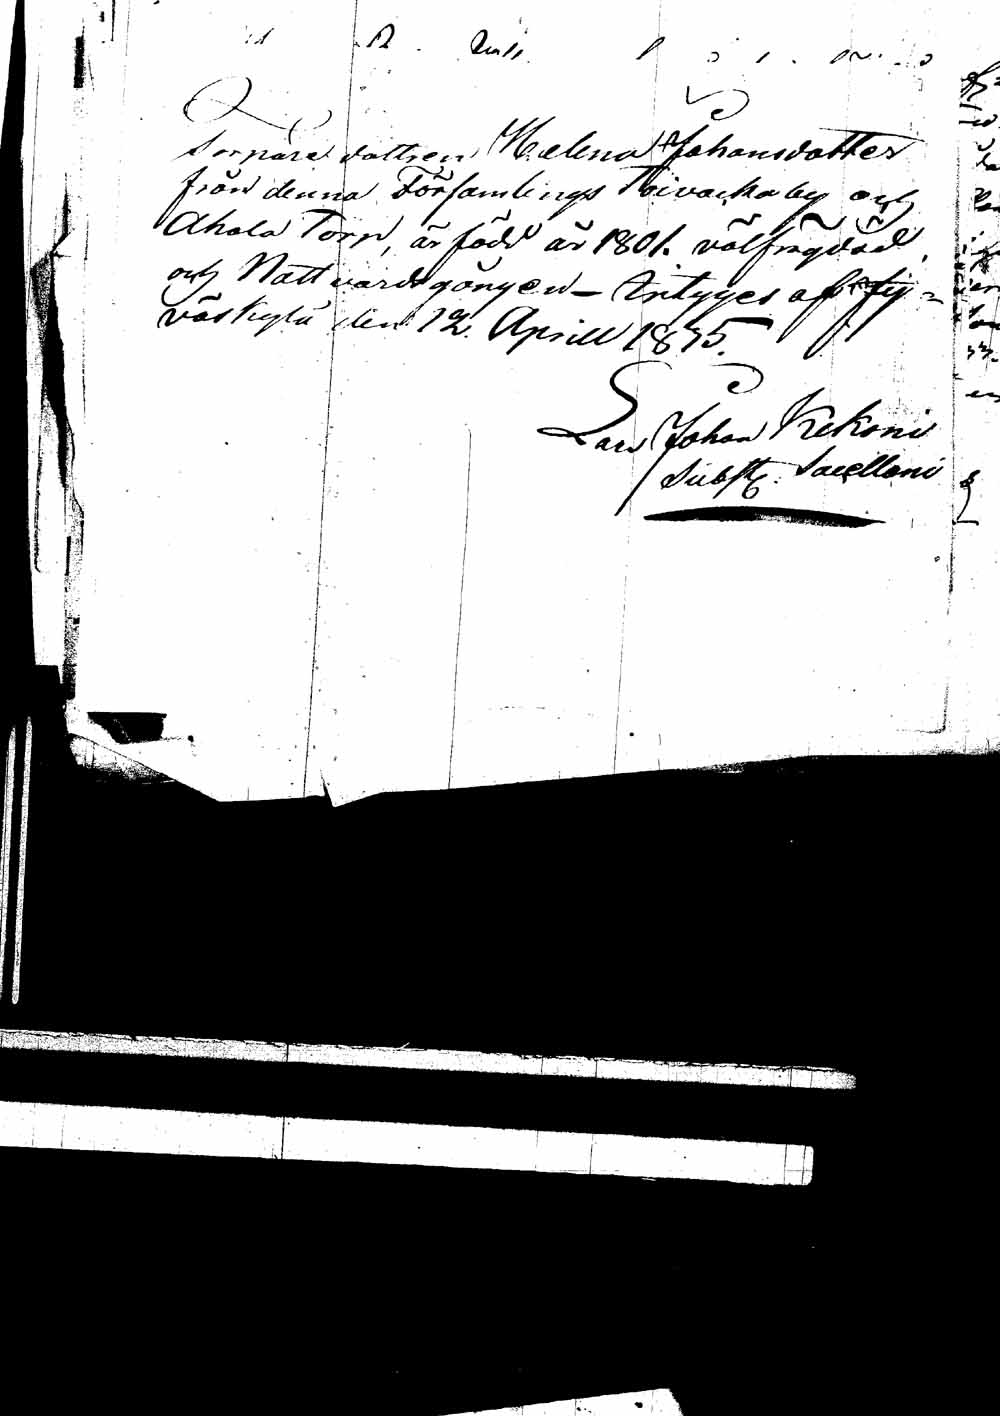 Torpare dottren Helena Johansdotter
från denna Församlings Toivacka by och
Ahola Torp, är född år 1801. välfrägdad,
och Nattvardsgången — Intyges af Jy=
väskylä den 12 Aprill 1835.
Lars Johan Kekoni
Subst. Sacellani